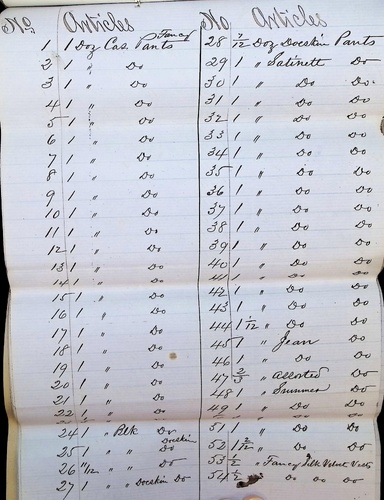 No. Articles
1 1 Doz Cas. Fancy Pants
2 1 " Do
3 1 " Do
4 1 " Do
5 1 " Do
6 1 " Do
7 1 " Do
8 1 " Do
9 1 " Do
10 1 " Do
11 1 " Do
12 1 " Do
13 1 " Do
14 1 " Do
15 1 " Do
16 1 " Do
17 1 " Do
18 1 " Do
19 1 " Do
20 1 " Do
21 1 " Do
22 1 " Do
" Do
24 1 " Blk Do
25 1 " " Doeskin Do
26 11/12 " " Do
27 1 " " Doeskin Do
No. Articles
28 7/12 Doz Doeskin Pants
29 1 " Satinett Do
30 1 " Do Do
31 1 " Do Do
32 1 " Do Do
33 1 " Do Do
34 1 " Do Do
35 1 " Do Do
36 1 " Do Do
37 1 " Do Do
38 1 " Do Do
39 1 " Do Do
40 1 " Do Do
41 1 " Do Do
42 1 " Do Do
43 1 " Do Do
44 1 1/12 " Do Do
45 1 " Jean Do
46 1 " Do Do
47 2/3 " assorted Do
48 1 " Summer Do
49 1 " Do Do
51 1 " Do Do
52 1 2/12 " Do Do
53 1/2 " Fancy Silk Velvet Vests
54 1/2 " Do Do Do